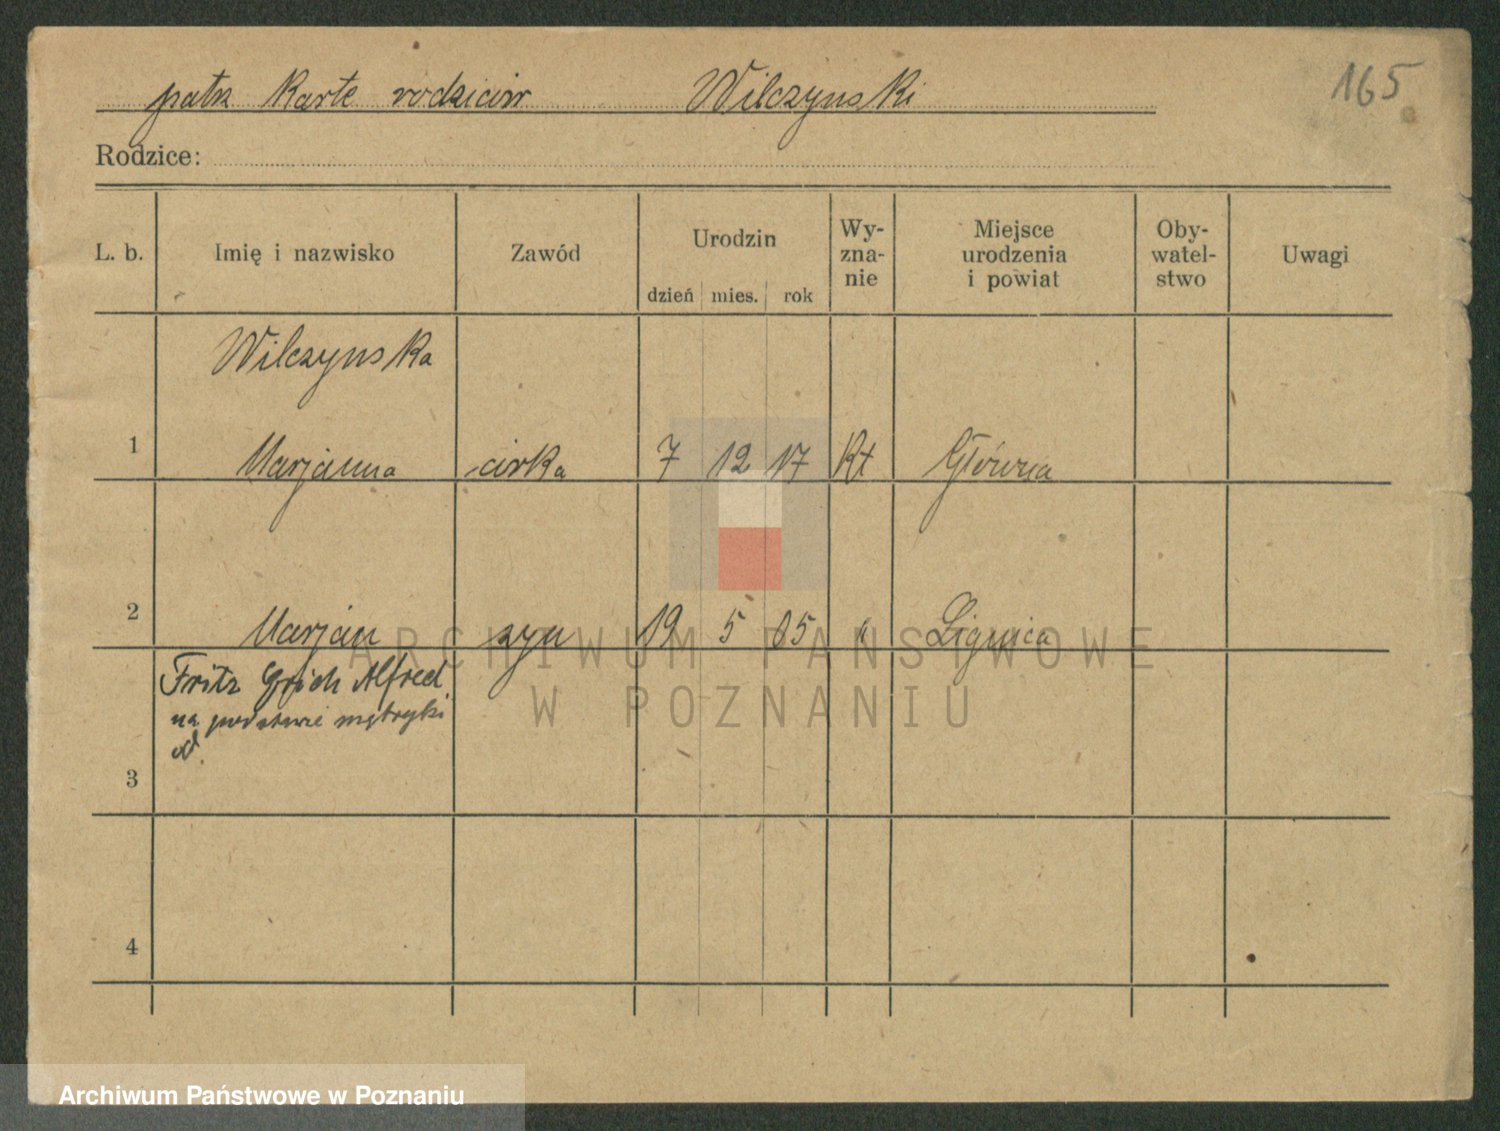 165
patrz Karte rodziców Wilczynski
Rodzice:
L. b. Imię i nazwisko Zawód Urodzin dzień mies. rok Wy-zna-nie Miejsce urodzenia i powiat Oby-watel-stwo Uwagi
Wilczynska
1 Marjanna córka 7 12 17 Rk Główna
2 Marjan syn 19 5 05 " Lignica
Fritz Erich Alfred
na podstawie metryki
od.
3
4
ARCHIWUM PAŃSTWOWE
W POZNANIU
Archiwum Państwowe w Poznaniu